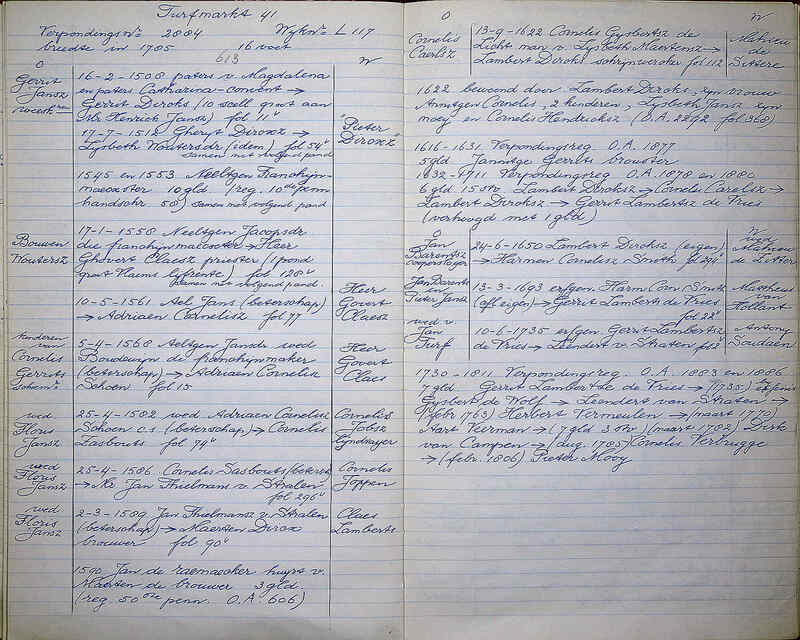 Turfmarkt 41
Verpondings No 2884 Wykno L 117
breedte in 1785 16 voet
613
O W
Gerrit
Jansz
16-2-1508 paters v. Magdalena
en paters Catharina-convent →
Gerrit Dircks (10 scell groot aan
Mr. Henrick Jansz) fol 11v
17-7-1512 Gheryt Dircxz →
Lysbeth Woutersdr (idem) fol 54v
samen met volgend pand
"Pieter
Dircxz"
1545 en 1553 Neeltgen Franchijn-
maecxster 10 gld (reg. 10de penn
handschr 50) samen met volgend pand
Bouwen
Woutersz
17-1-1558 Neeltgen Jacopsdr
die franchijnmaecster → Heer
Ghovert Claesz priester (1 pond
groot Vlaems lyfrente) fol 128v
samen met volgend pand.
10-5-1561 Ael Jans (beterschap)
→ Adriaen Cornelisz fol 77
Heer
Govert
Claesz
kinderen
van
Cornelis
Gerrits
Schoen
5-4-1568 Aeltgen Jansdr wed
Boudewyn de franchijnmaker
(beterschap) → Adriaen Cornelisz
Schoen fol 15
Heer
Govert
Claes
wed
Floris
Jansz
25-4-1582 wed Adriaen Cornelisz
Schoen c.s (beterschap) → Cornelis
Sasbouts fol 74v
Cornelis
Jobsz
Lijndrayer
wed
Floris
Jansz
25-4-1586 Cornelis Sasbouts (betersch)
→ Mr. Jan Thielmans v. Stralen
fol 296v
Cornelis
Joppen
wed
Floris
Jansz
2-3-1589 Jan Thielmansz v. Stralen
(beterschap) → Maerten Dircx
brouwer fol 90v
Claes
Lamberts
1590 Jan de raemaecker huyrt v.
Maerten de brouwer 3 gld
(reg. 50ste penn. O.A. 606)
O W
Cornelis
Caerlsz
13-9-1622 Cornelis Gysbertsz de
Licht man v. Lysbeth Maertensz →
Lambert Dircks schrijnwerker fol 112
Mathieu
de
Sittere
1622 bewoond door Lambert Dircks, zyn vrouw
Annitgen Cornelis, 2 kinderen, Lysbeth Jansz zyn
moey en Cornelis Hendricksz (O.A. 2272 fol 368)
1616-1631 Verpondingsreg. O.A. 1877
5 gld Jannitge Gerrits brouster
1632-1711 Verpondingsreg. O.A. 1878 en 1880
6 gld 15 str Lambert Dircksz → Cornelis Carelsz →
Lambert Dircksz → Gerrit Lambertsz de Vries
(verhoogd met 1 gld)
O W
Jan
Barentsz
24-6-1650 Lambert Dircksz (eigen)
→ Harmen Cornelisz Smith
wed
Mathieu
de Zitter
Jan Barents
en
Pieter Jansz
13-3-1693 erfgen. Harm Corn Smith
(afl eigen) → Gerrit Lamberts de Vries
fol 22v
Mattheus
van
Hollant
wed v.
Jan
Turf
10-6-1735 erfgen Gerrit Lambertsz
de Vries → Leendert v. Straten
Antony
Soudaen
1730-1811 Verpondingsreg. O.A. 1883 en 1886
7 gld Gerrit Lambertsz de Vries → (1735)
Gysbert de Wolf → Leendert van Straten →
(febr 1763) Herbert Vermeulen → (maart 1770)
Aart Veerman → (7 gld 3 str) (maart 1782) Dirk
van Campen → (aug. 1785) Cornelis Verbrugge
→ (febr. 1806) Pieter Mooy